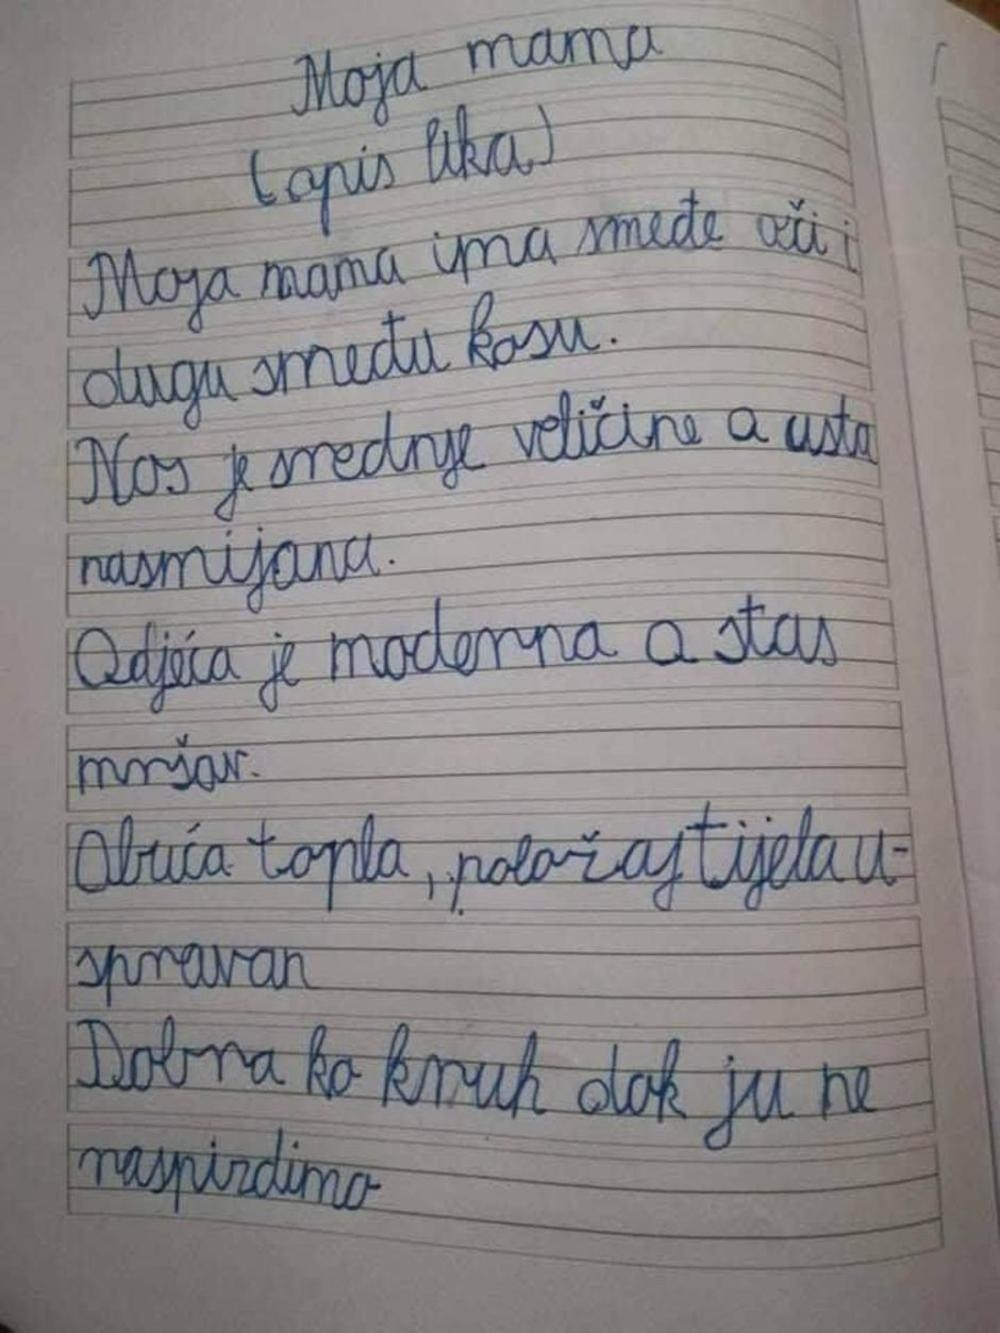 Moja mama
(opis lika)
Moja mama ima smeđe oči i
dugu smeđu kosu.
Nos je srednje veličine a usta
nasmijana.
Odjeća je moderna a stas
mršav.
Obuća topla, položaj tijela u-
spravan
Dobra ko kruh dok ju ne
raspizdimo